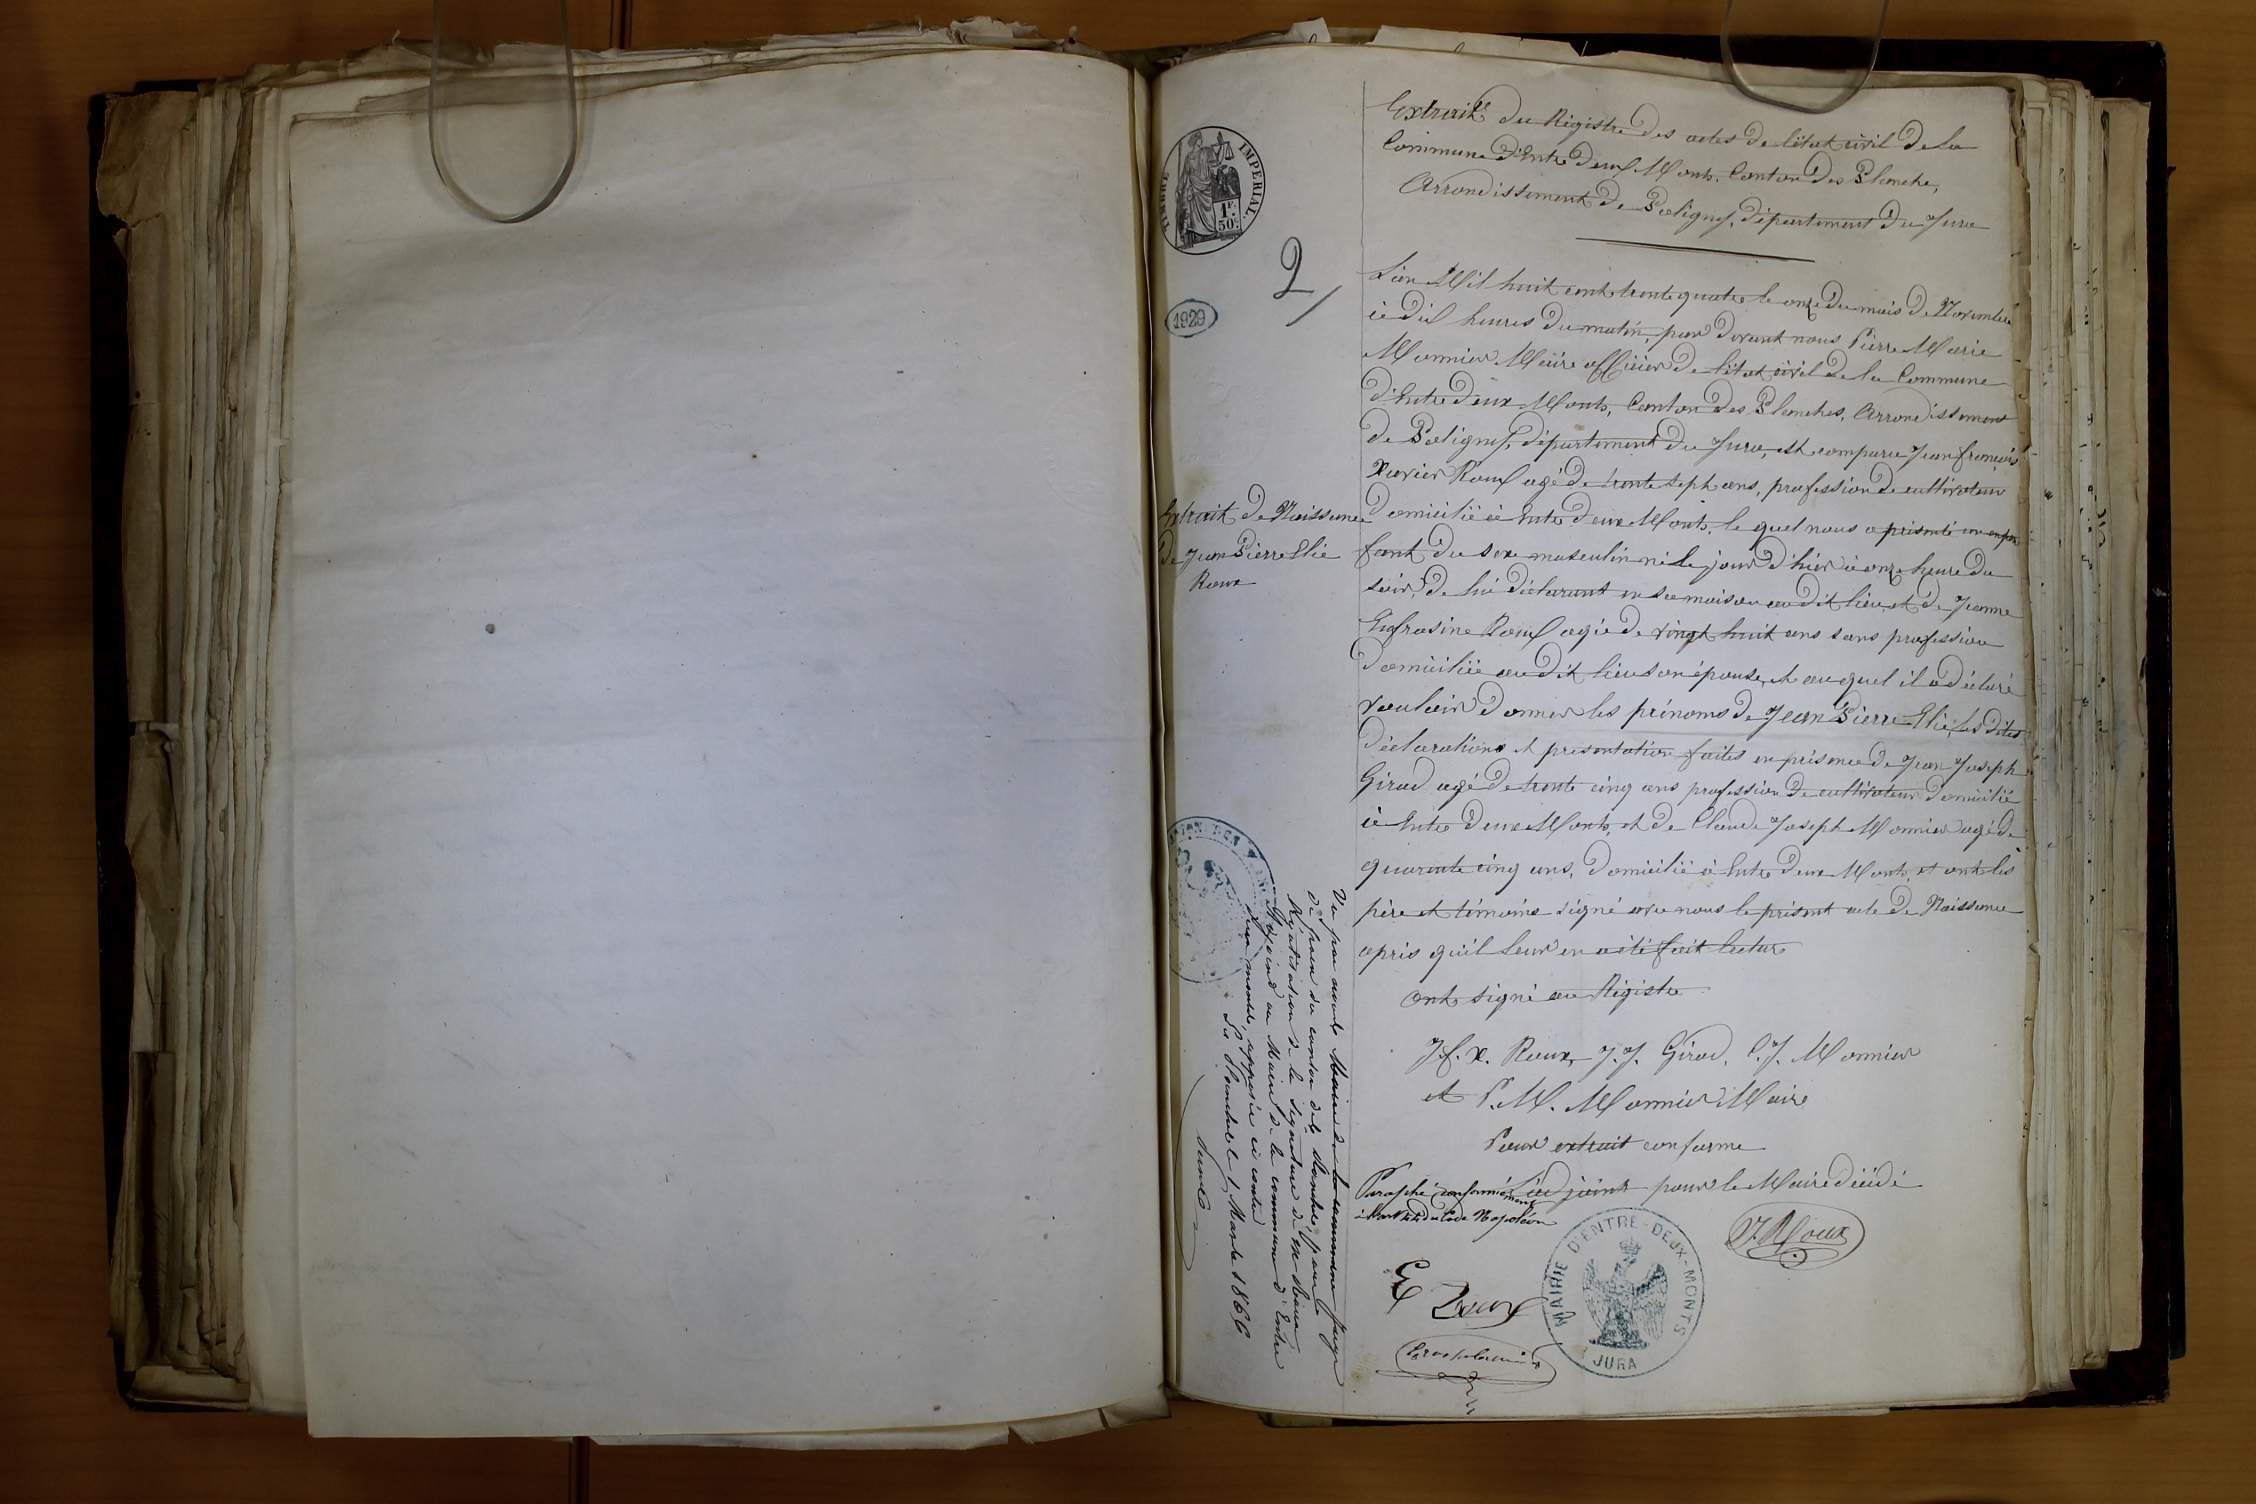 Extrait du Régistre des actes de l'état civil de la
Commune d'Entre Deux Monts, Canton des Planche,
Arrondissement de Poligny, département du Jura
TIMBRE IMPERIAL
1F. 50c.
2
1929
Extrait de Naissance
de Jean Pierre Elie
Roux
L'an Mil huit cent trente quatre le onze du mois de Novembre
à dix heures du matin, par devant nous Pierre Marie
Monnier Maire officier de l'état civil de la Commune
d'Entre deux Monts, Canton des Planches, Arrondissement
de Poligny, département du Jura, est comparu Jean françois
Xavier Roux agé de trente sept ans, profession de cultivateur
domicilié à Entre deux Monts, le quel nous a présenté un en
fant du sexe masculin né le jour d'hier à onze heure du
soir, de lui déclarant en sa maison au dit lieu, et de Jeanne
Eufrasine Roux agée de vingt huit ans sans profession
domiciliée au dit lieu son épouse, et auquel il a déclaré
vouloir donner les prénoms de Jean Pierre Elie, les dites
déclarations et présentation faites en présence de Jean Joseph
Girod agé de trente cinq ans profession de cultivateur domicilié
à Entre deux Monts, et de Claude Joseph Monnier agé de
quarante cinq ans, domicilié à Entre deux Monts, et ont les
père et témoins signé avec nous le présent acte de Naissance
après qu'il leur en a été fait lecture
Ont signé au Régistre
J.f. X. Roux, J. J. Girod, C. J. Monnier
et P. M. Monnier Maire
Pour extrait conforme
L'adjoint pour le Maire décédé
Paraphé conformément
à l'art 44 du Code Napoléon
J. Roux
E Roux
MAIRIE D'ENTRE-DEUX-MONTS
JURA
Vu par nous Maire de la commune Juge
de paix du canton des Planches, pour
légalisation de la signature de Mr Roux
Adjoint au Maire de la commune d'Entre
deux monts, apposée ci contre
Les Planches le 1 Mars 1866